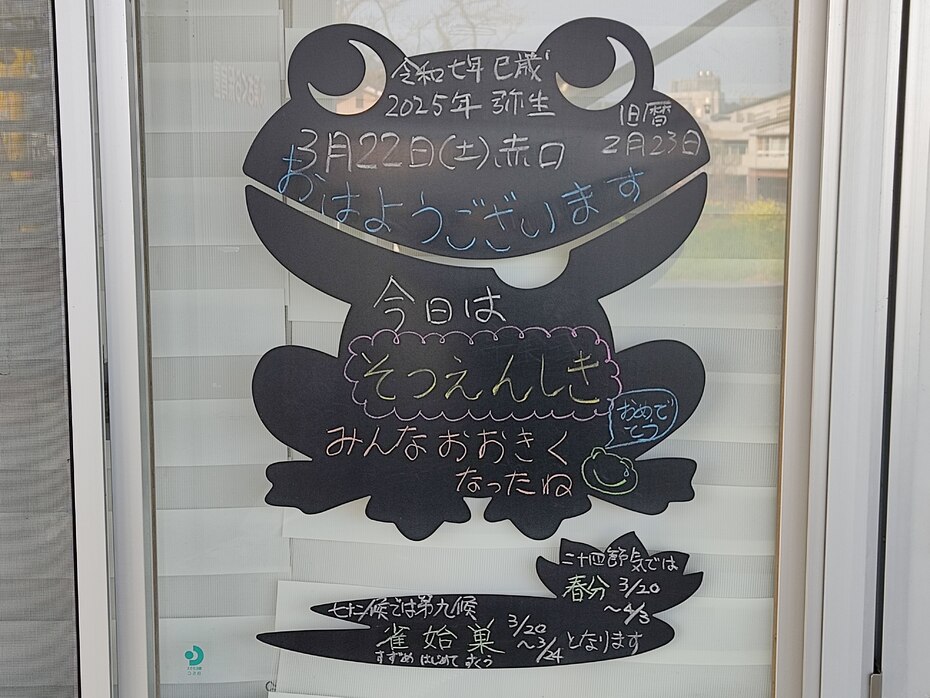 令和七年 巳歳
2025年 弥生
旧暦
3月22日(土)赤口
2月23日
おはようございます
今日は
そつえんしき
おめで
とう
みんなおおきく
なったね
二十四節気では
春分 3/20
～4/3
七十二候では第九候
雀始巣 3/20
～3/24 となります
すずめ はじめて すくう